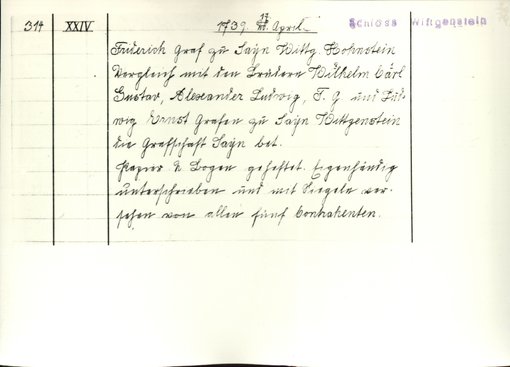 314 XXIV 1739 17 April. Schloss Wittgenstein
Friderich Graf zu Sayn Wittg. Hohnstein
Vergleich mit den Brüdern Wilhelm Carl
Gustav, Alexander Ludwig, F. G. und Lud-
wig Ernst Grafen zu Sayn Wittgenstein
die Grafschaft Sayn bet.
Papier 2 Bogen geheftet. Eigenhändig
unterschrieben und mit Siegeln ver-
sehen von allen fünf Contrahenten.